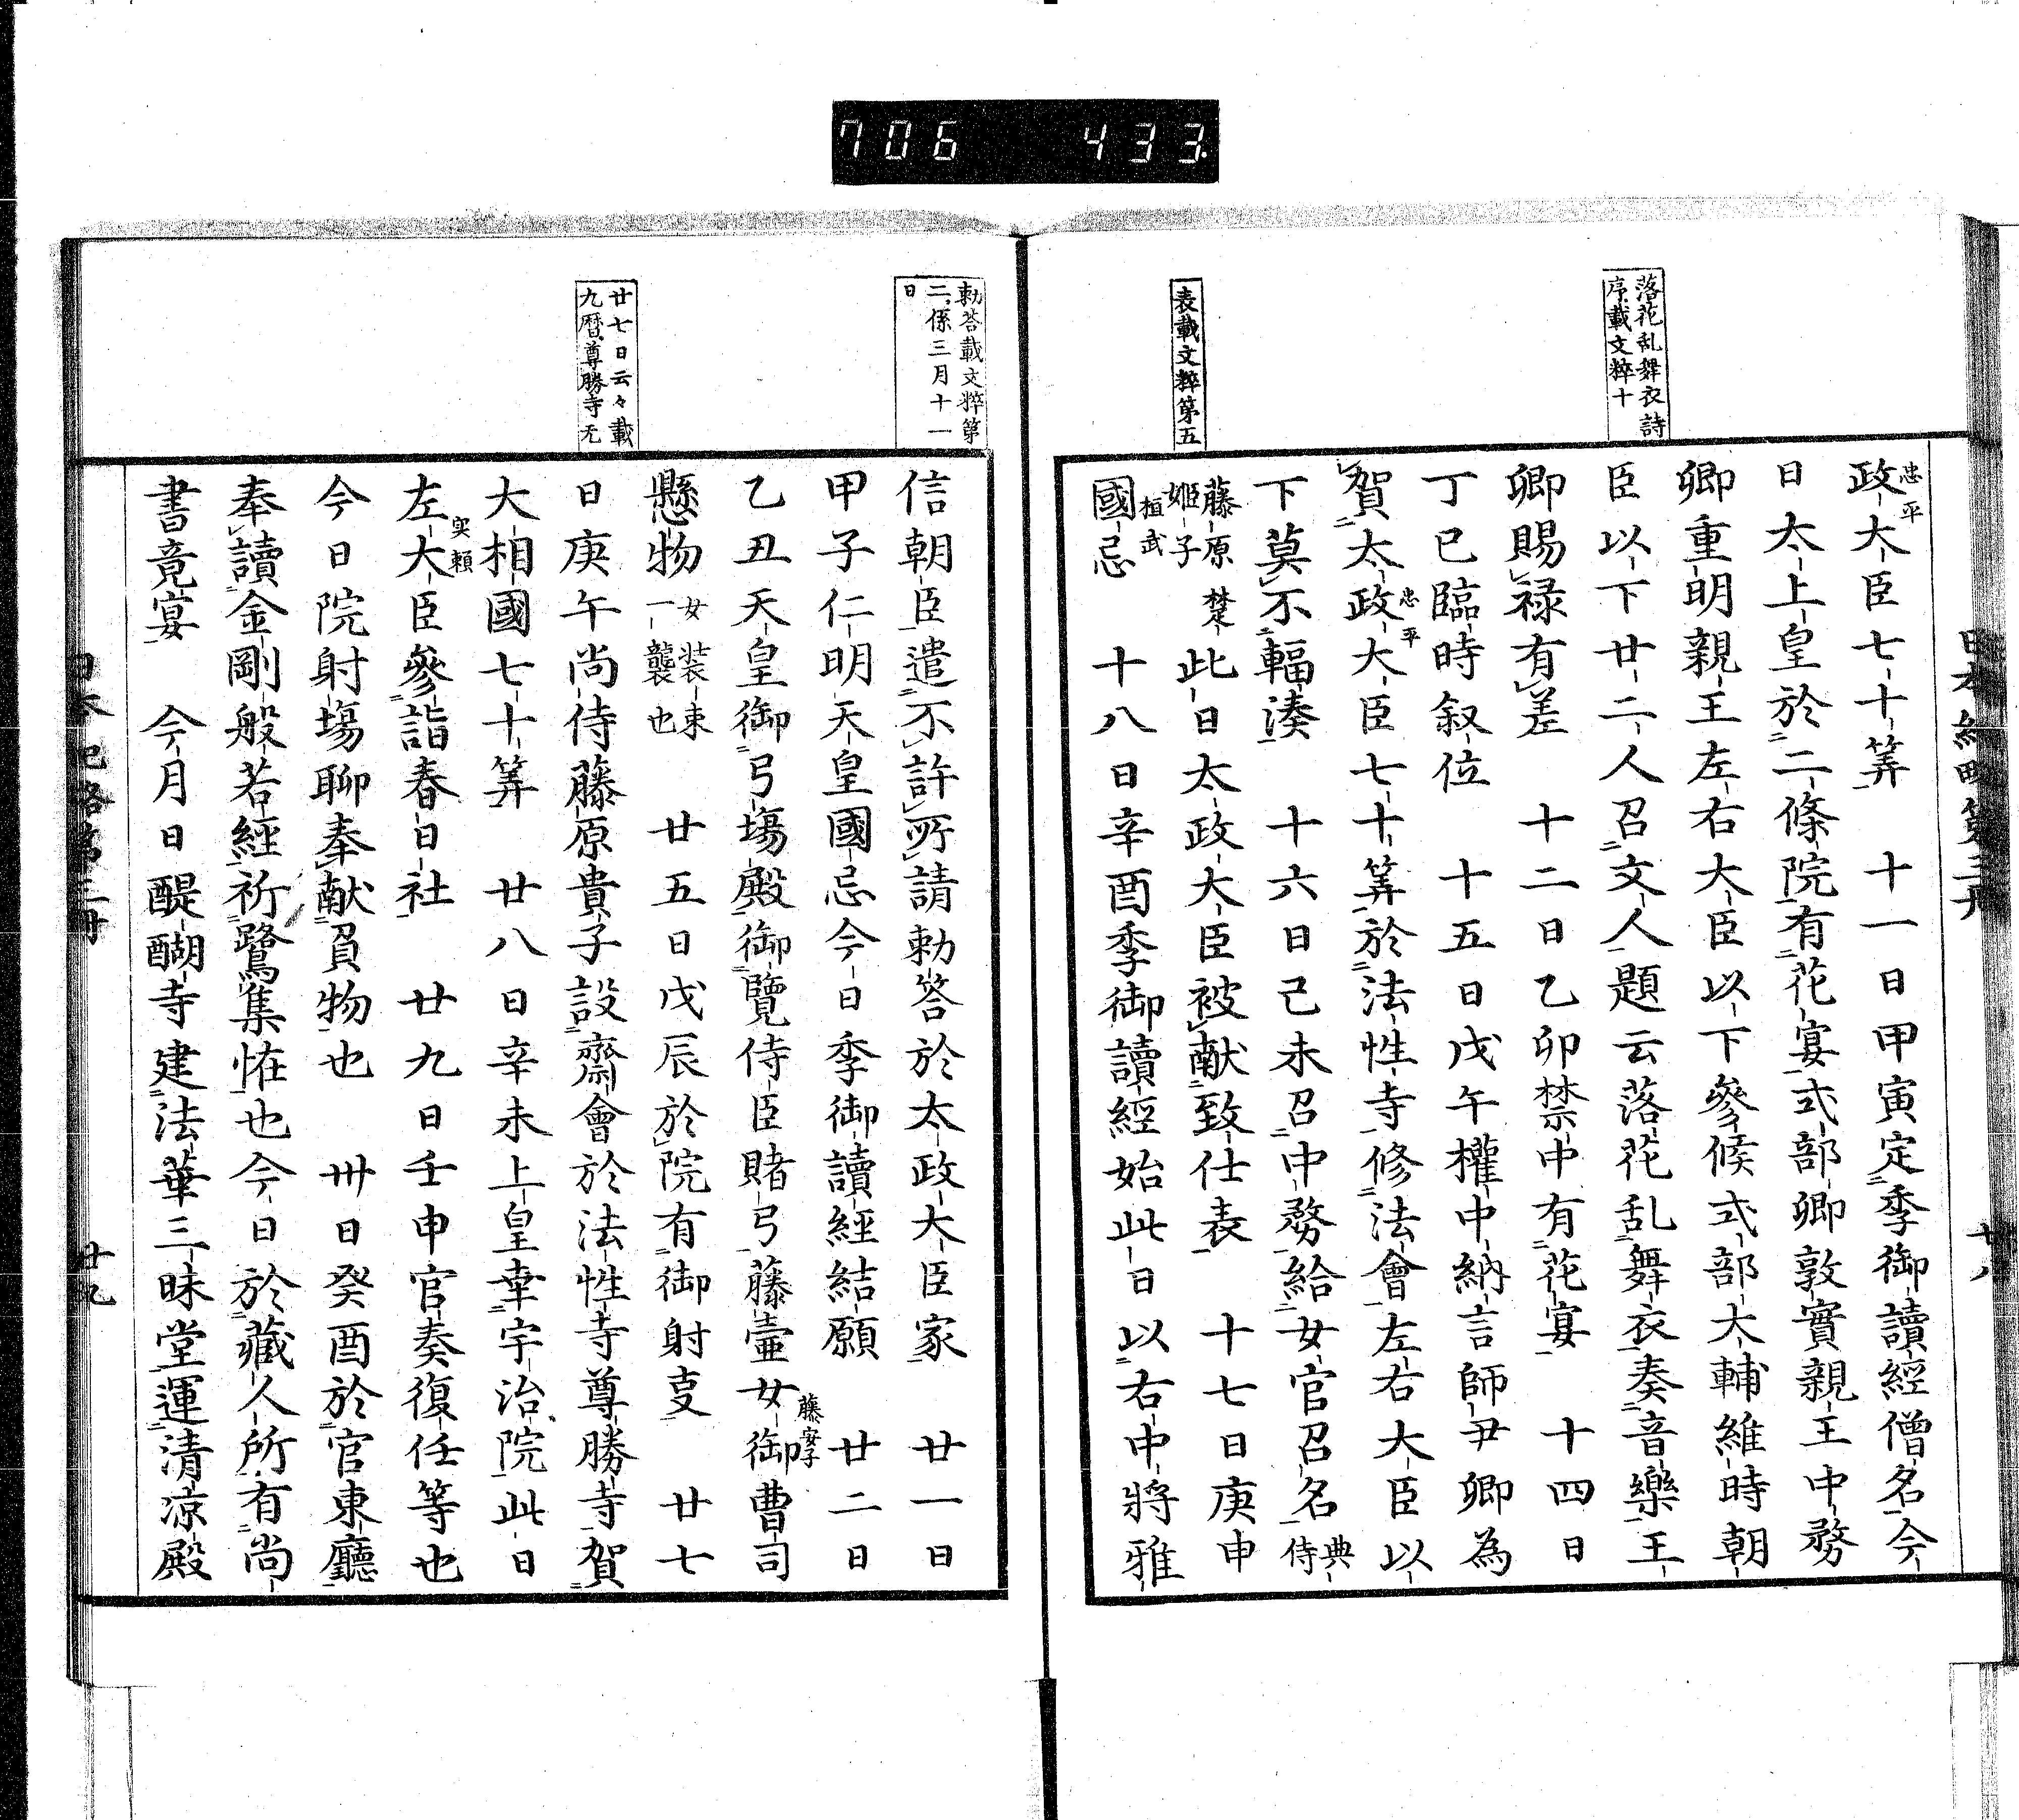 706 433.
日本紀略第三册 廿八
落花乱舞衣詩
序載文粹十
表載文粹第五
忠平
政大臣七十筭 十一日甲寅定季御讀經僧名今
日太上皇於二條院有花宴式部卿敦實親王中務
卿重明親王左右大臣以下參候式部大輔維時朝
臣以下廿二人召文人題云落花乱舞衣奏音樂王
卿賜禄有差 十二日乙卯禁中有花宴 十四日
丁巳臨時叙位 十五日戊午權中納言師尹卿為
忠平
賀太政大臣七十筭於法性寺修法會左右大臣以
下莫不輻湊 十六日己未召中務給女官召名典侍
藤原姬子 楚 此日太政大臣被献致仕表 十七日庚申
桓武
國忌 十八日辛酉季御讀經始此日以右中將雅
勅荅載文粹第
二係三月十一
日
廿七日云々載
九暦尊勝寺无
信朝臣遣不許所請勅答於太政大臣家 廿一日
甲子仁明天皇國忌今日季御讀經結願 廿二日
藤安子
乙丑天皇御弓場殿御覽侍臣賭弓藤壷女御曹司
懸物女装束一襲也 廿五日戊辰於院有御射叓 廿七
日庚午尚侍藤原貴子設齋會於法性寺尊勝寺賀
大相國七十筭 廿八日辛未上皇幸宇治院此日
実頼
左大臣參詣春日社 廿九日壬申官奏復任等也
今日院射場聊奉献負物也 卅日癸酉於官東廳
奉讀金剛般若經祈鷺集恠也今日於藏人所有尚
書竟宴 今月日醍醐寺建法華三昧堂運清凉殿
日本紀略第三册 廿九